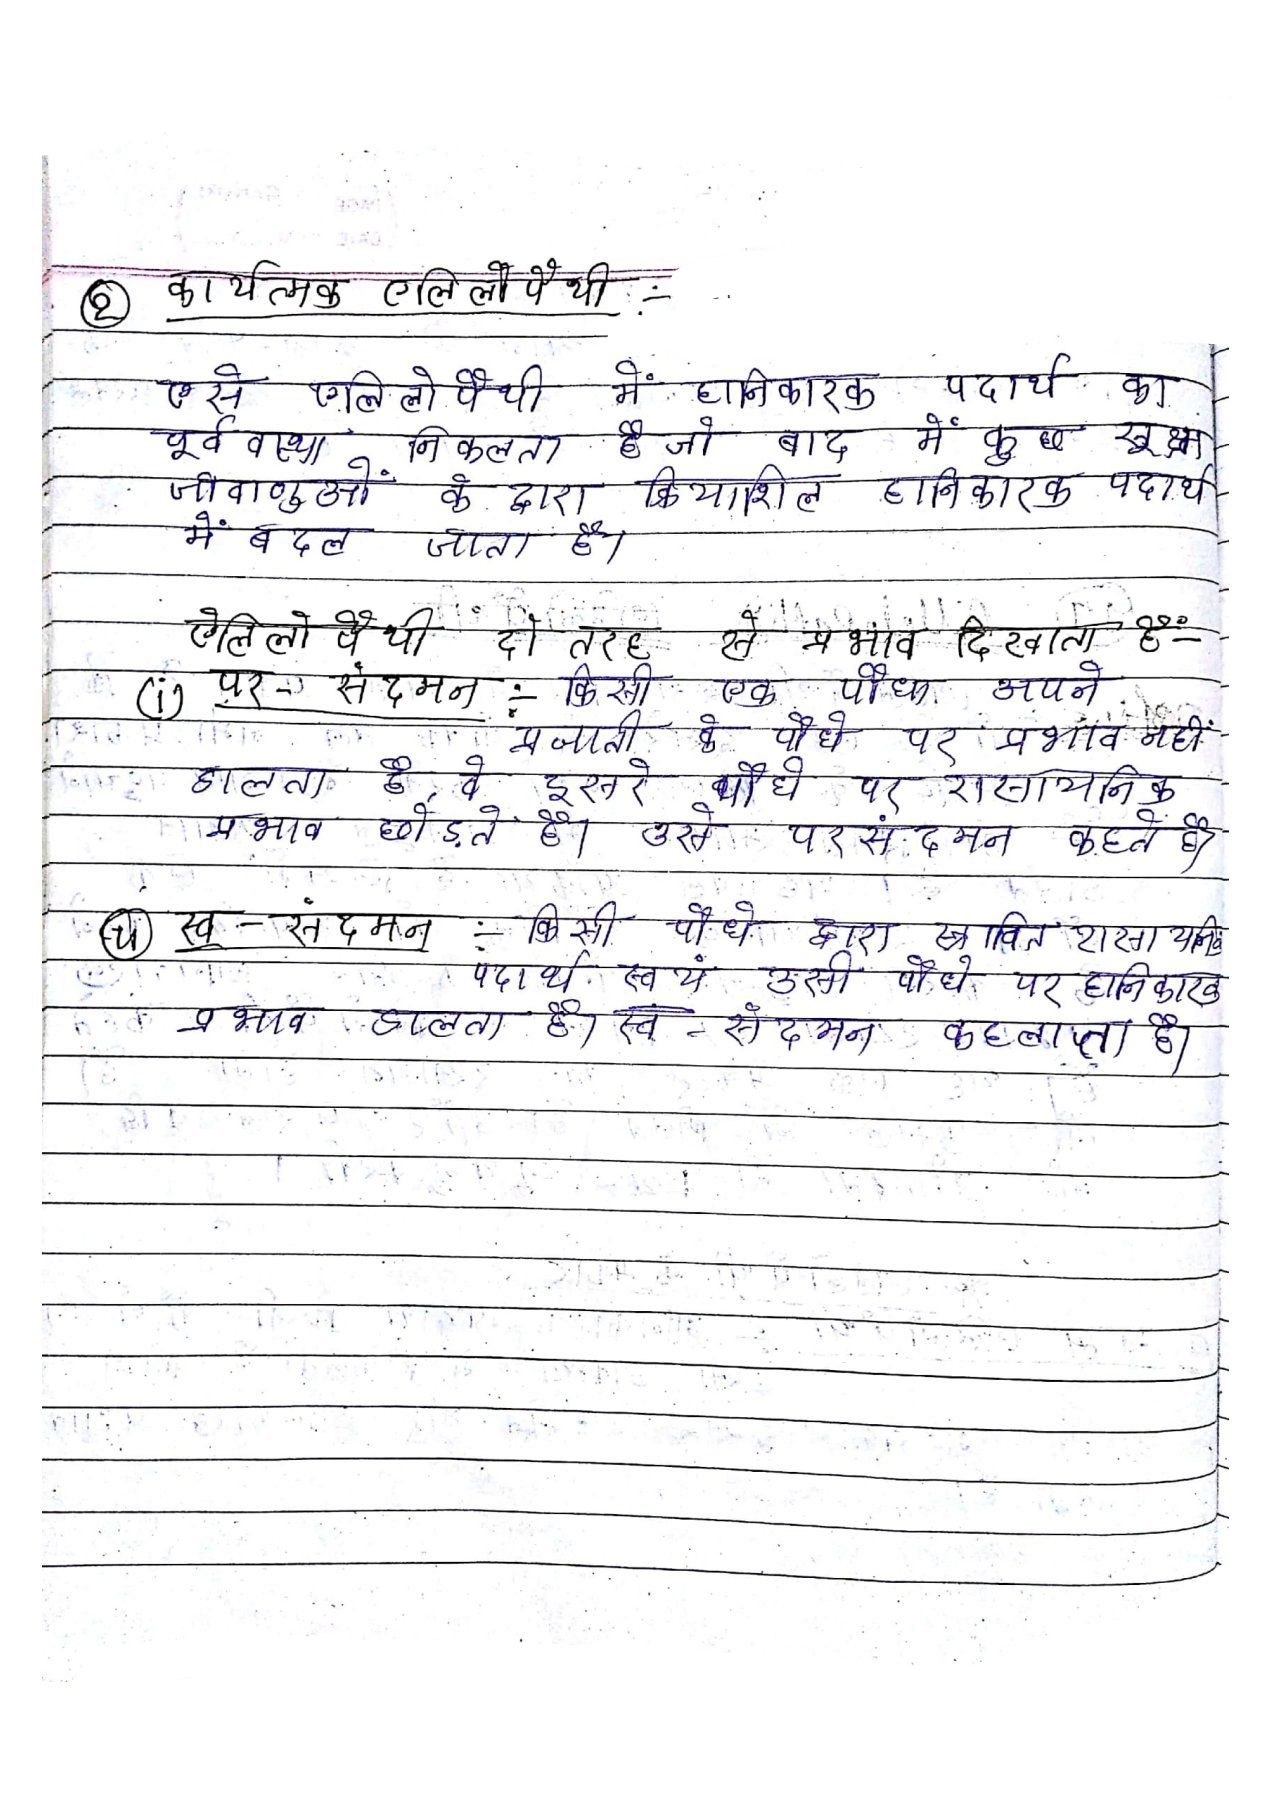 ② कार्यत्मक एलिलोपैथी :-
एसे एलिलोपैथी में हानिकारक पदार्थ का
पूर्ववस्था निकलता है जो बाद में कुछ सूक्ष्म
जीवाणुओं के द्वारा क्रियाशिल हानिकारक पदार्थ
में बदल जाता है।
ऐलिलोपैथी दो तरह से प्रभाव दिखाता है:-
(i) पर - संदमन :- किसी एक पौधा अपने
प्रजाती के पौधे पर प्रभाव नहीं
डालता है, वे दुसरे पौधे पर रासायनिक
प्रभाव छोड़ते है। उसे परसंदमन कहते है।
(ii) स्व - संदमन :- किसी पौधे द्वारा स्त्रावित रासायनिक
पदार्थ स्वयं उसी पौधे पर हानिकारक
प्रभाव डालता है। स्व - संदमन कहलाता है।